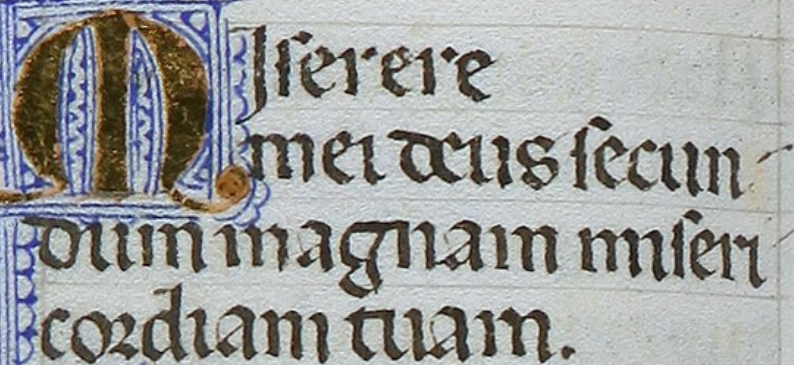 Miserere
mei deus secun
dum magnam miseri
cordiam tuam.